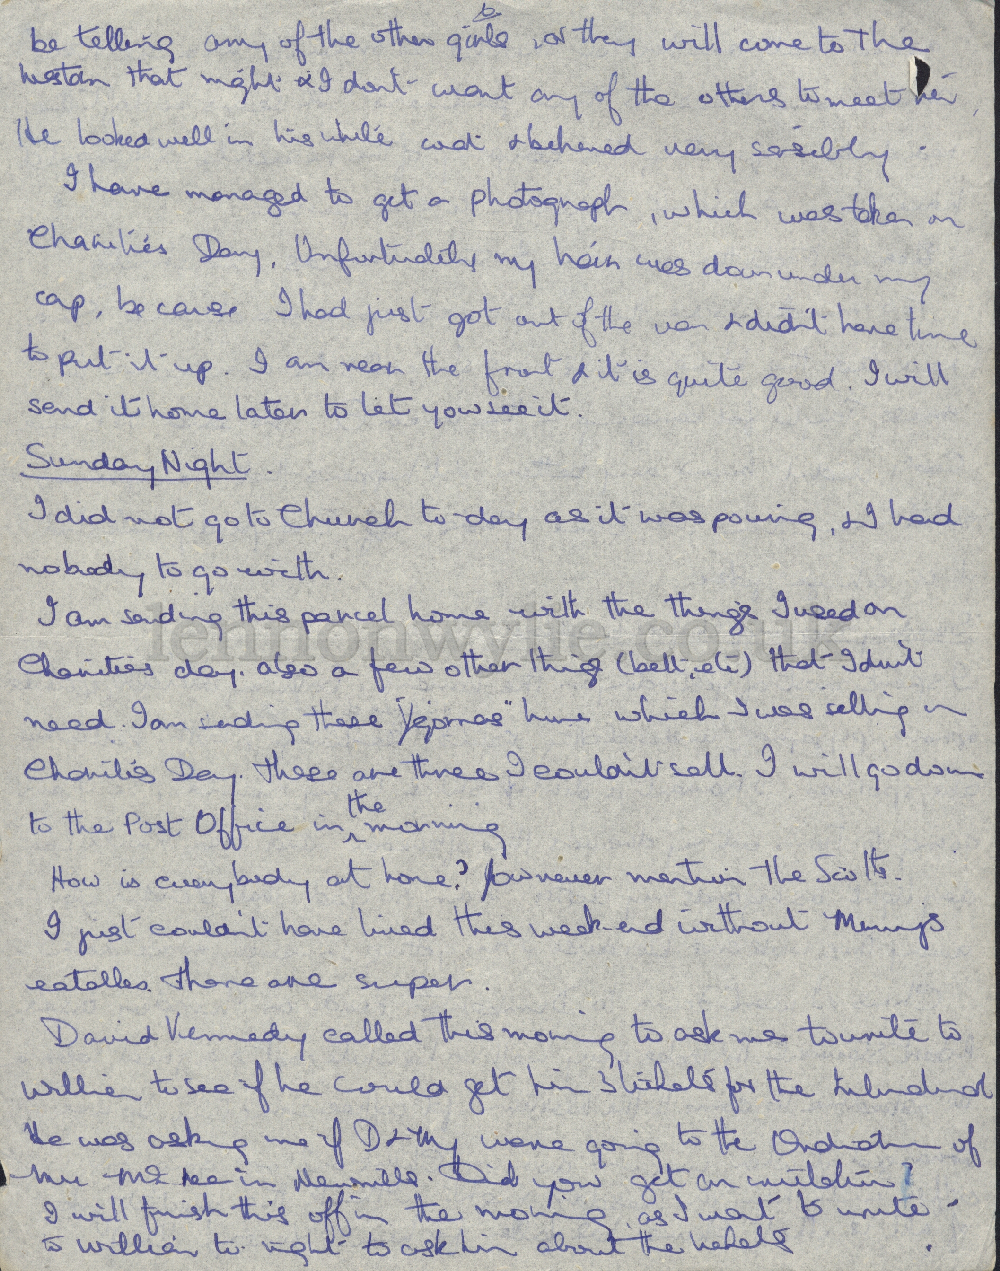 be telling any of the other girls, or they will come to the
that night & I don't want any of the others to meet her.
He looked well in his white coat & behaved very sensibly.
I have managed to get a photograph, which was taken on
Charities Day. Unfortunately my hair was down under my
cap, because I had just got out of the van & didn't have time
to put it up. I am near the front & it is quite good. I will
send it home later to let you see it.
Sunday Night.
I did not go to Church to-day as it was pouring, & I had
nobody to go with.
I am sending this parcel home with the things I used on
Charities day. also a few other things (belt, etc) that I don't
need. I am sending these home which I was selling on
Charities Day. These are three I couldn't sell. I will go down
to the Post Office in the morning
How is everybody at home? You never mention the Scotts.
I just couldn't have lived this week-end without Mummy's
eatables. These are super.
David Kennedy called this morning to ask me to write to
William to see if he could get him 3 tickets for the
He was asking me if D & My were going to the Ordination of
Mr McKee in Newmills. Did you get an invitation?
I will finish this off in the morning, as I want to write
to William to-night to ask him about the tickets.
lennonwylie.co.uk